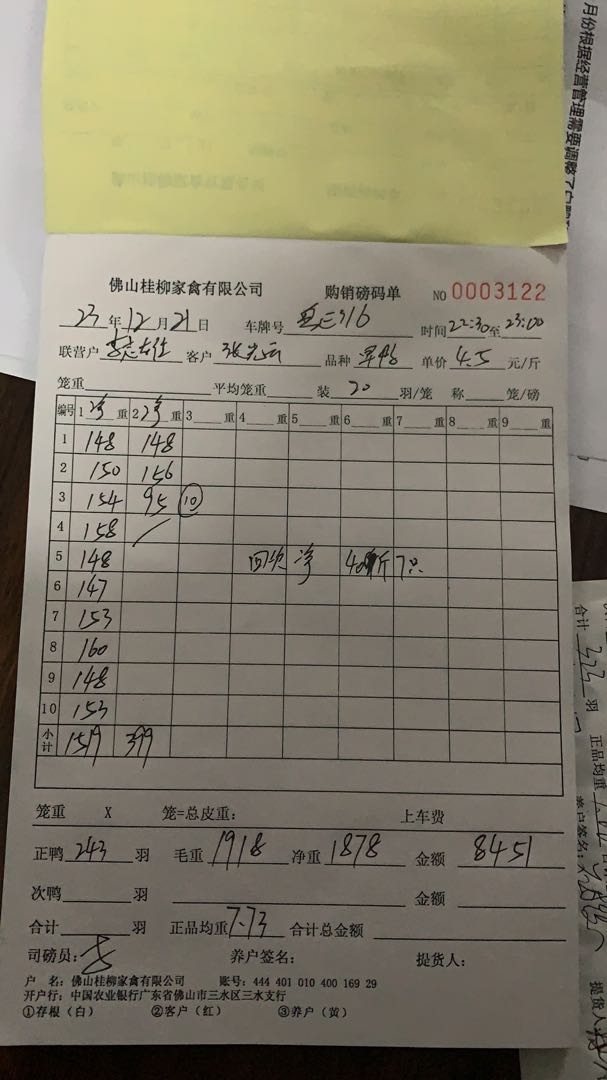 月份根据经营管理需要调整了
佛山桂柳家禽有限公司 购销磅码单 NO 0003122
23年12月21日 车牌号 316 时间22:30至23:00
联营户 客户 品种 单价 4.5 元/斤
笼重 平均笼重 装 20 羽/笼 称 笼/磅
编号 1 重 2 重 3 重 4 重 5 重 6 重 7 重 8 重 9 重
1 148 148
2 150 156
3 154 95 10
4 158
5 148 净 斤 7只
6 147
7 153
8 160
9 148
10 153
小计 1519 399
笼重 X 笼=总皮重: 上车费
正鸭 243 羽 毛重 1918 净重 1878 金额 8451
次鸭 羽 金额
合计 羽 正品均重 7.73 合计总金额
司磅员: 养户签名: 提货人:
户 名: 佛山桂柳家禽有限公司 账号: 444 401 010 400 169 29
开户行: 中国农业银行广东省佛山市三水区三水支行
①存根(白) ②客户(红) ③养户(黄)
合计 323 羽 正品均重
养户签名:
提货人